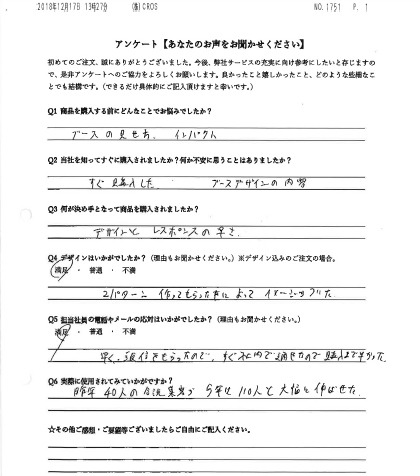 2018年12月17日 13時27分 (株)CROS NO.1751 P. 1
アンケート【あなたのお声をお聞かせください】
初めてのご注文、誠にありがとうございました。今後、弊社サービスの充実に向け参考にしたいと存じますので、是非アンケートへのご協力をよろしくお願いします。良かったこと嬉しかったこと、どのような些細なことでも結構です。(できるだけ具体的にご記入頂けますと幸いです。)
Q1 商品を購入する前にどんなことでお悩みでしたか?
ブースの見せ方、インパクト
Q2 当社を知ってすぐに購入されましたか?何か不安に思うことはありましたか?
すぐ購入した ブースデザインの内容
Q3 何が決め手となって商品を購入されましたか?
デザインと レスポンスの早さ
Q4 デザインはいかがでしたか?(理由もお聞かせください。)※デザイン込みのご注文の場合。
満足 ・ 普通 ・ 不満
2パターン 作ってもらった事によって イメージがついた
Q5 担当社員の電話やメールの応対はいかがでしたか?(理由もお聞かせください。)
満足 ・ 普通 ・ 不満
早く返信をもらったので、すぐ社内で
Q6 実際に使用されてみていかがですか?
昨年 40人の 集客が 今年は 110人と 大幅に伸ばせた
☆その他ご感想・ご要望等ございましたらご自由にご記入ください。